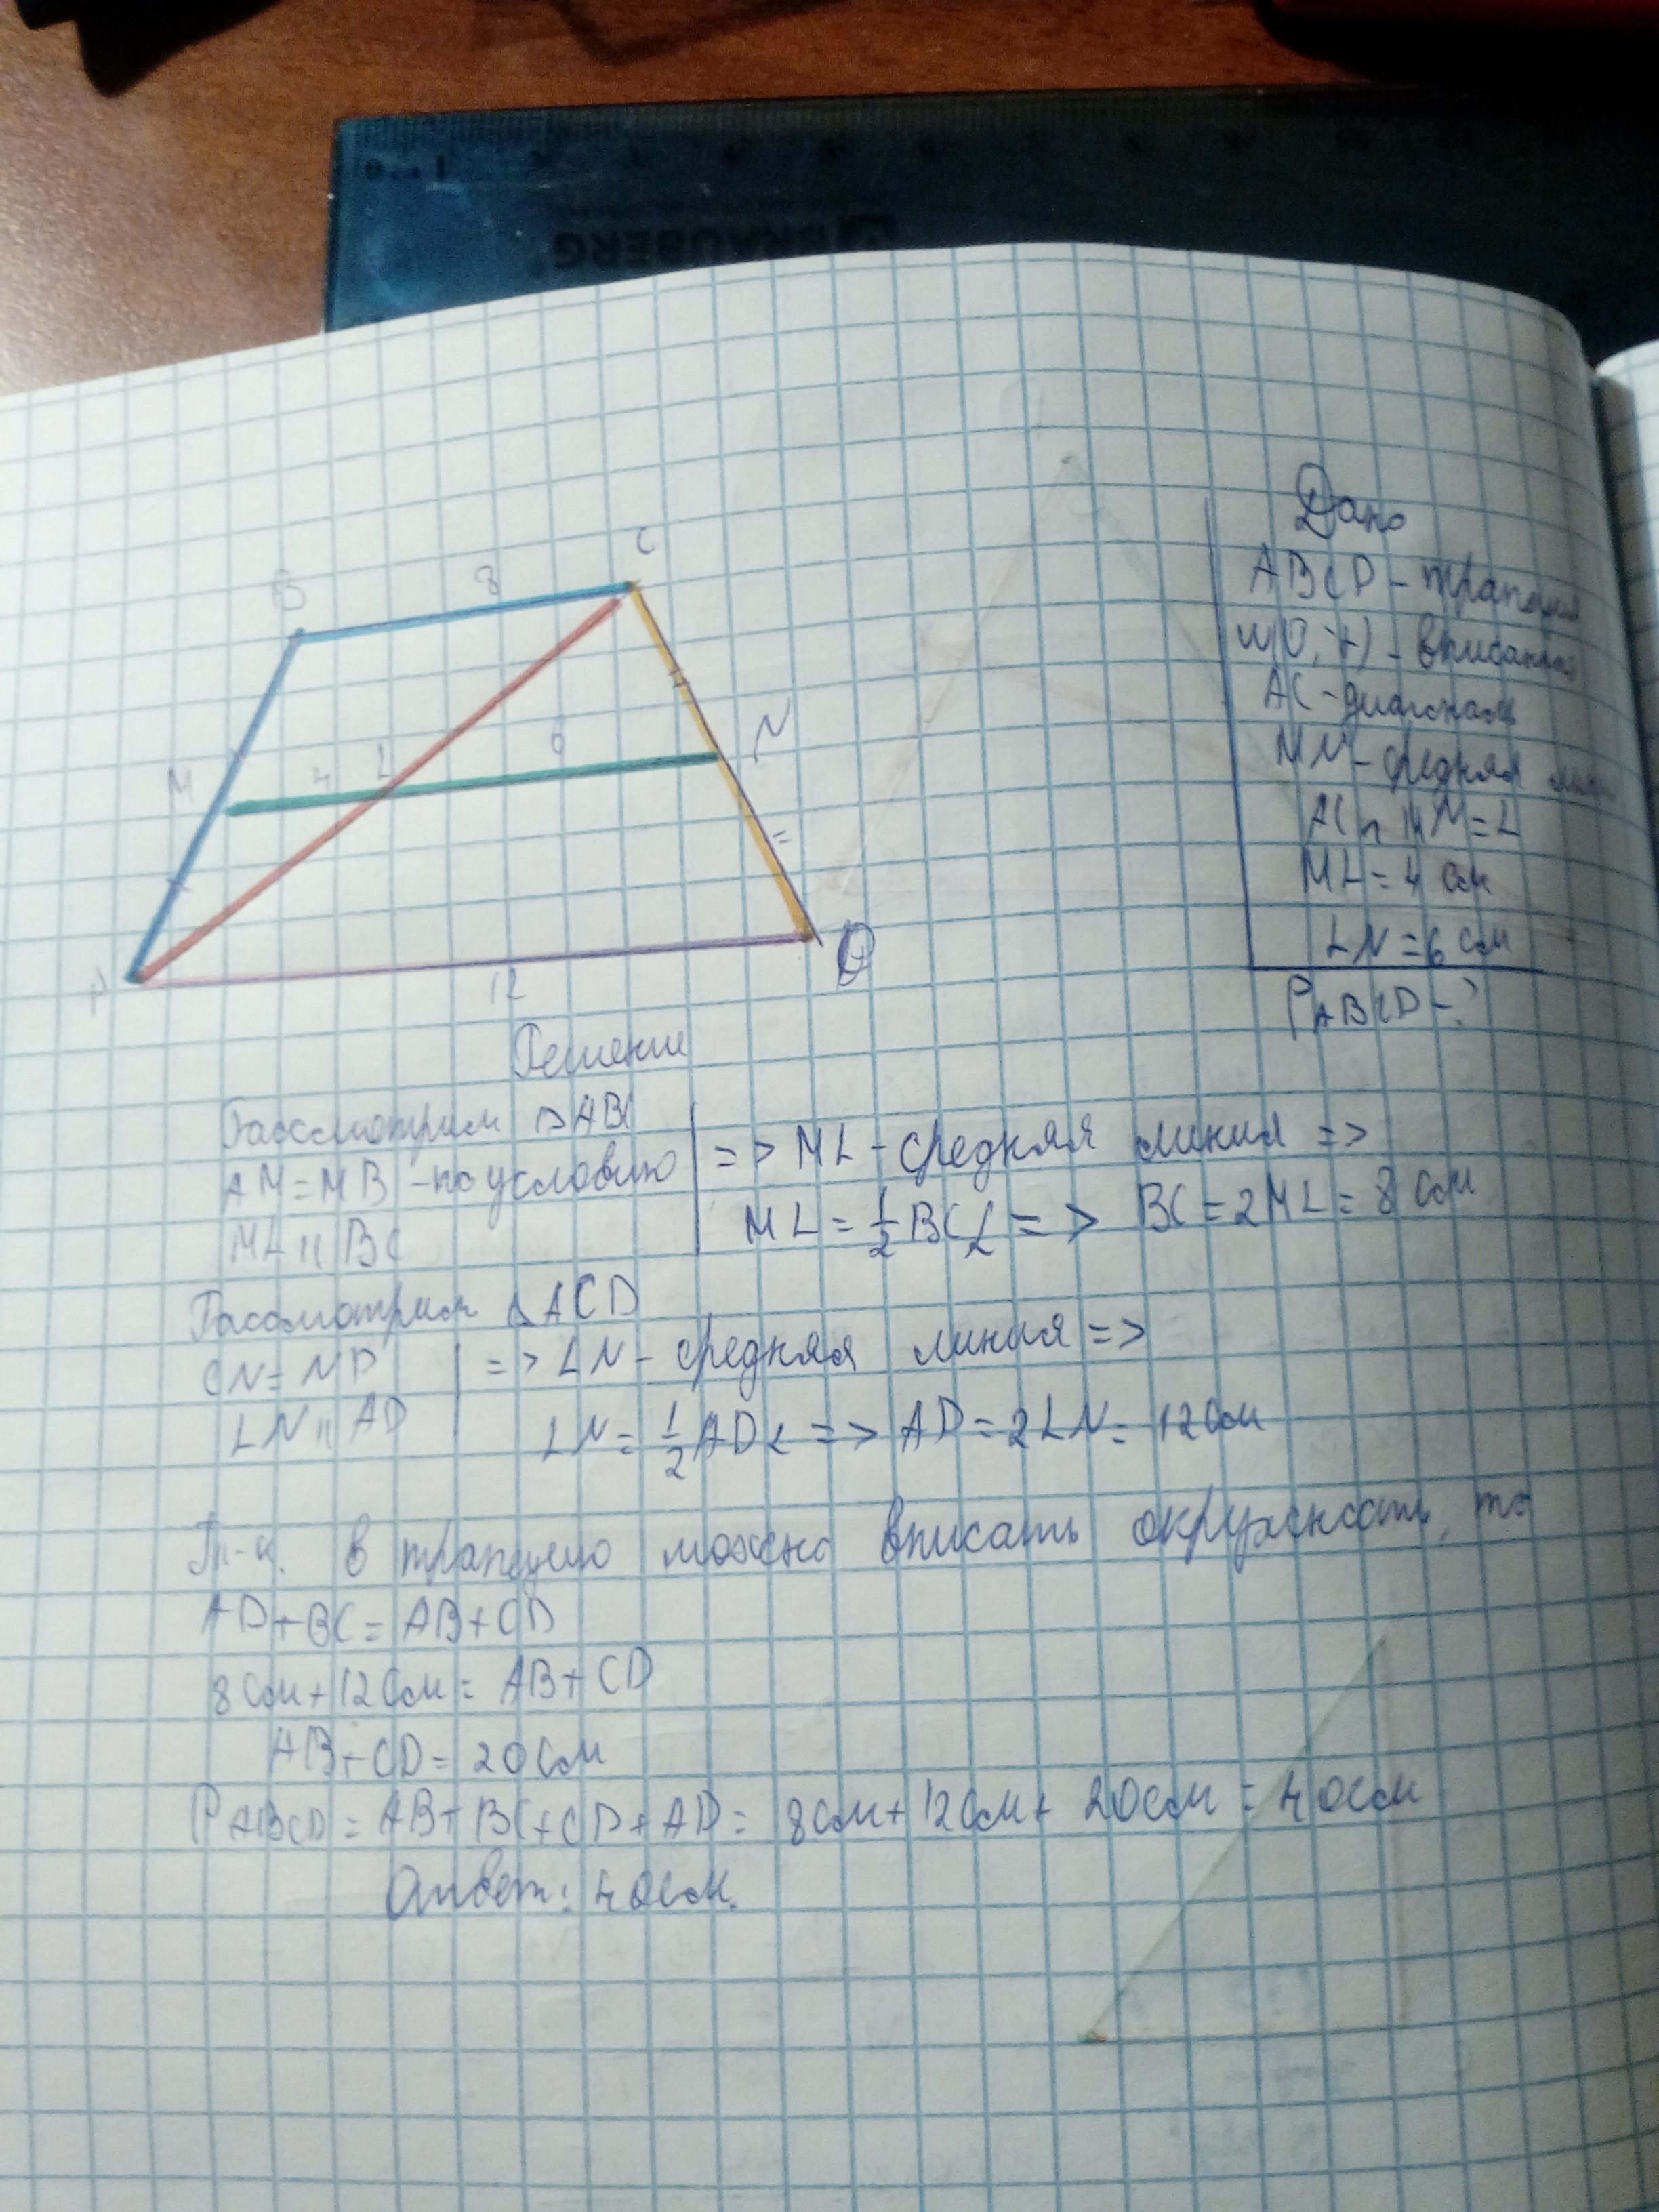 BRAUBERG
C
B
8
N
M
4
L
6
A
D
12
Дано
ABCD - трапеция
AC - диагональ
MN - средняя
AC ∩ MN = L
ML = 4 см
LN = 6 см
PABCD - ?
Решение
Рассмотрим △ABC
AM = MB - по условию
ML || BC
=> ML - средняя линия =>
ML = 1/2 BC => BC = 2ML = 8 см
Рассмотрим △ACD
CN = ND
LN || AD
=> LN - средняя линия =>
LN = 1/2 AD => AD = 2LN = 12 см
Т-к. в трапецию можно вписать окружность, то
AD + BC = AB + CD
8 см + 12 см = AB + CD
AB + CD = 20 см
PABCD = AB + BC + CD + AD = 8 см + 12 см + 20 см = 40 см
Ответ: 40 см.